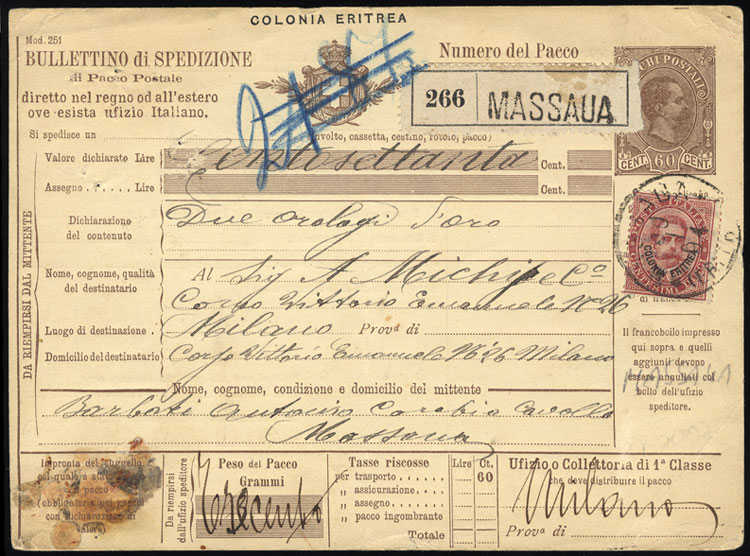 COLONIA ERITREA
Mod. 251
BULLETTINO di SPEDIZIONE
di Pacco Postale
diretto nel regno od all'estero
ove esista ufizio Italiano.
Numero del Pacco
266 MASSAUA
PACCHI POSTALI
CENT. 60 CENT.
Si spedisce un
(involto, cassetta, cestino, rotolo, pacco)
Valore dichiarato Lire Centosettanta Cent.
Assegno Lire Cent.
Dichiarazione del contenuto
Due orologi d'oro
COLONIA ERITREA
DA RIEMPIRSI DAL MITTENTE
Nome, cognome, qualità del destinatario
Al Sig A Michip e Co
Corso Vittorio Emanuele No 26
Luogo di destinazione
Milano Prov.a di
Domicilio del destinatario
Corso Vittorio Emanuele N 26 Milano
Il francobollo impresso
qui sopra e quelli
aggiunti devono
essere annullati col
bollo dell'ufizio
speditore.
MASSAUA
Nome, cognome, condizione e domicilio del mittente
Barbati Antonio
Massaua
Impronta del Suggello
col quale
pacco
(obbligatoria pei pacchi
con dichiarazione di
valore)
Da riempirsi
dall'ufizio speditore
Peso del Pacco
Grammi
Trecento
Tasse riscosse
per trasporto
" assicurazione
" assegno
" pacco ingombrante
Totale
Lire Ct.
60
Ufizio o Collettoria di 1a Classe
che deve distribuire il pacco
Milano
Prov.a di